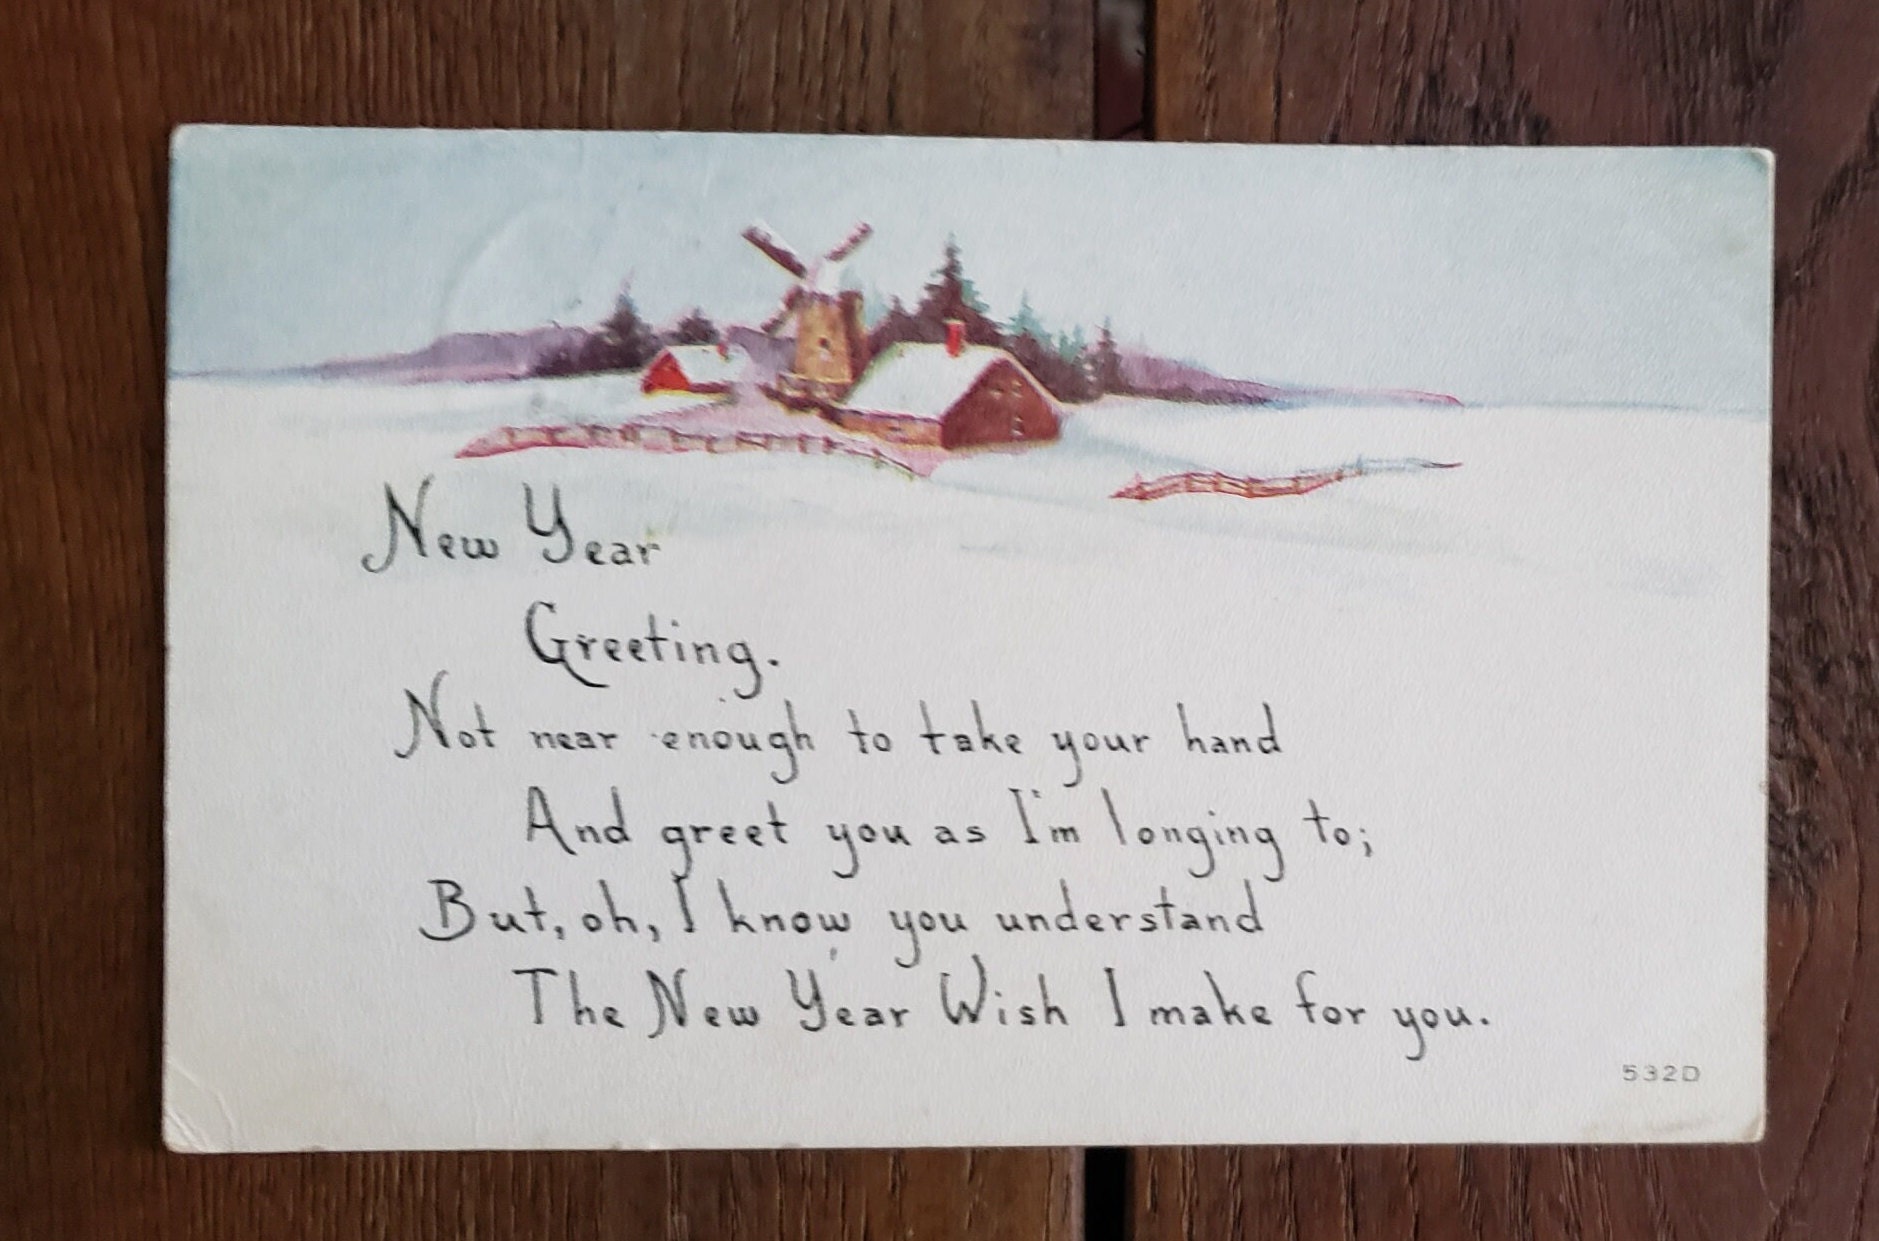 New Year
Greeting.
Not near enough to take your hand
And greet you as I'm longing to;
But, oh, I know you understand
The New Year Wish I make for you.
532D